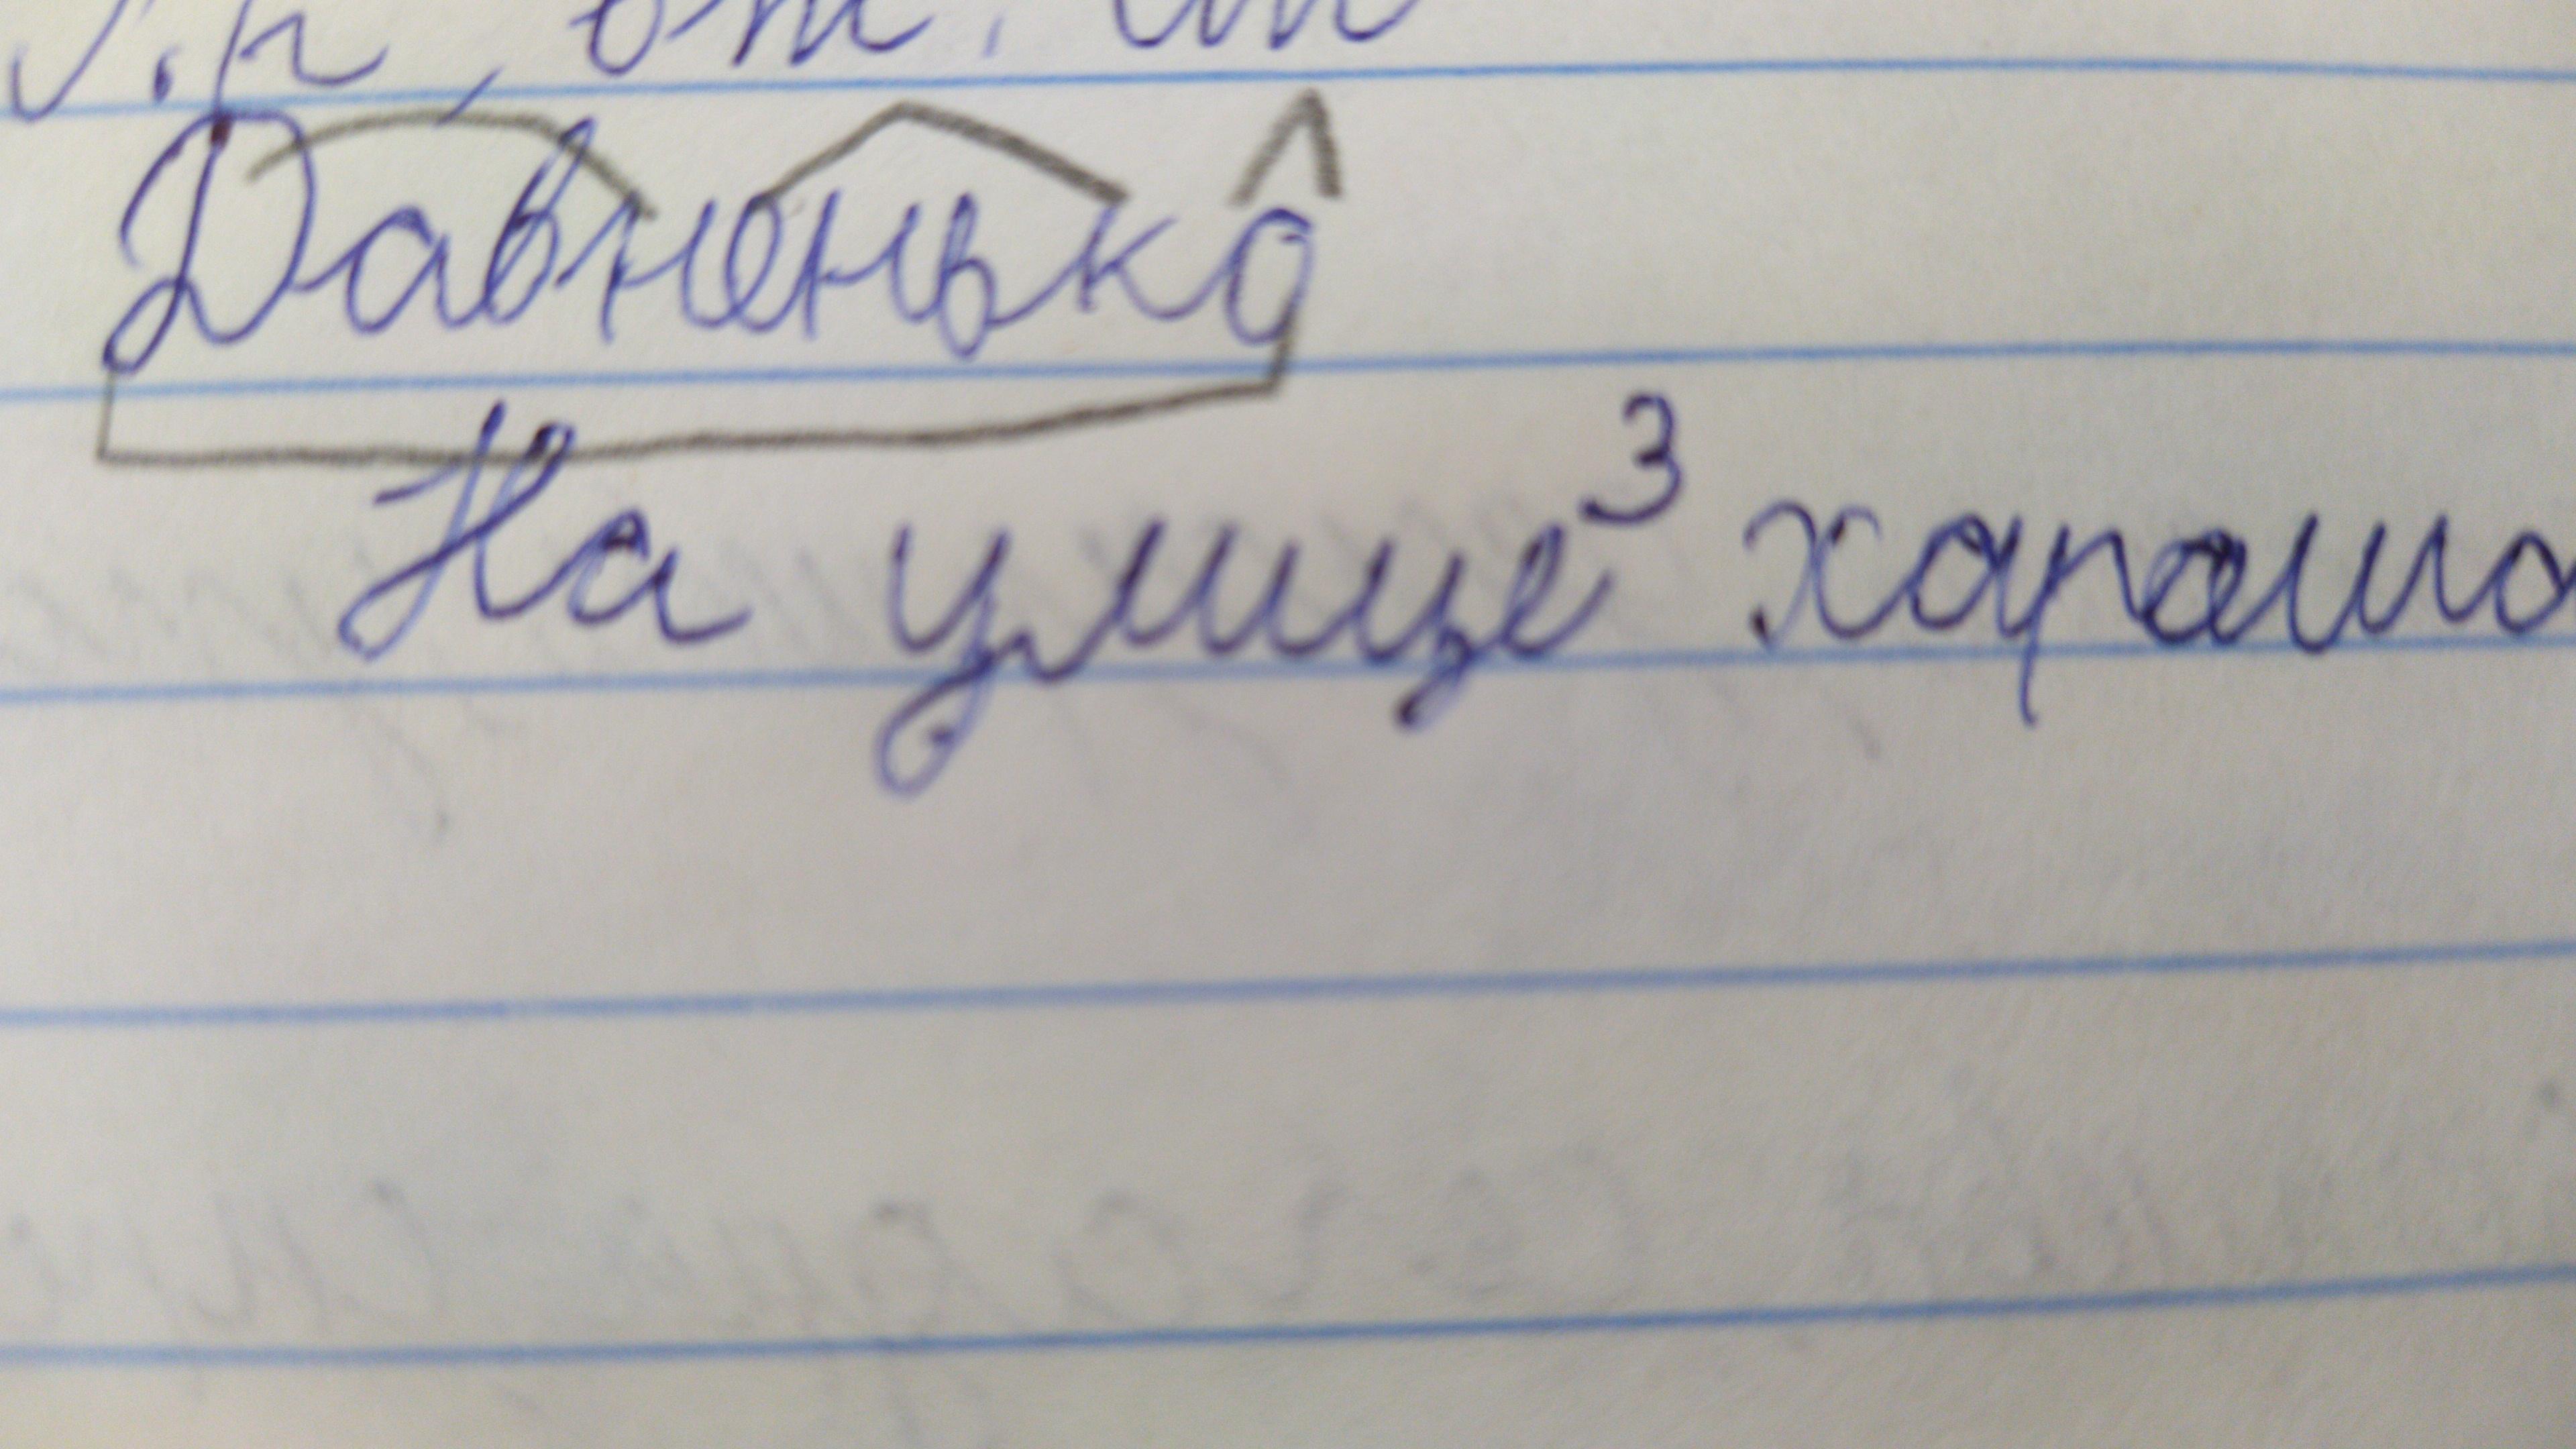 Давненько
На улице³ хорошо